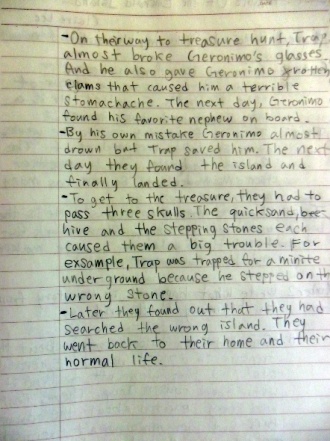 -On their way to treasure hunt, Trap
almost broke Geronimo's glasses.
And he also gave Geronimo
clams that caused him a terrible
stomachache. The next day, Geronimo
found his favorite nephew on board.
-By his own mistake Geronimo almost
drown but Trap saved him. The next
day they found the island and
finally landed.
-To get to the treasure, they had to
pass three skulls. The quicksand, bee
hive and the stepping stones each
caused them a big trouble. For
exsample, Trap was trapped for a minite
under ground because he stepped on th
wrong stone.
-Later they found out that they had
searched the wrong island. They
went back to their home and their
normal life.